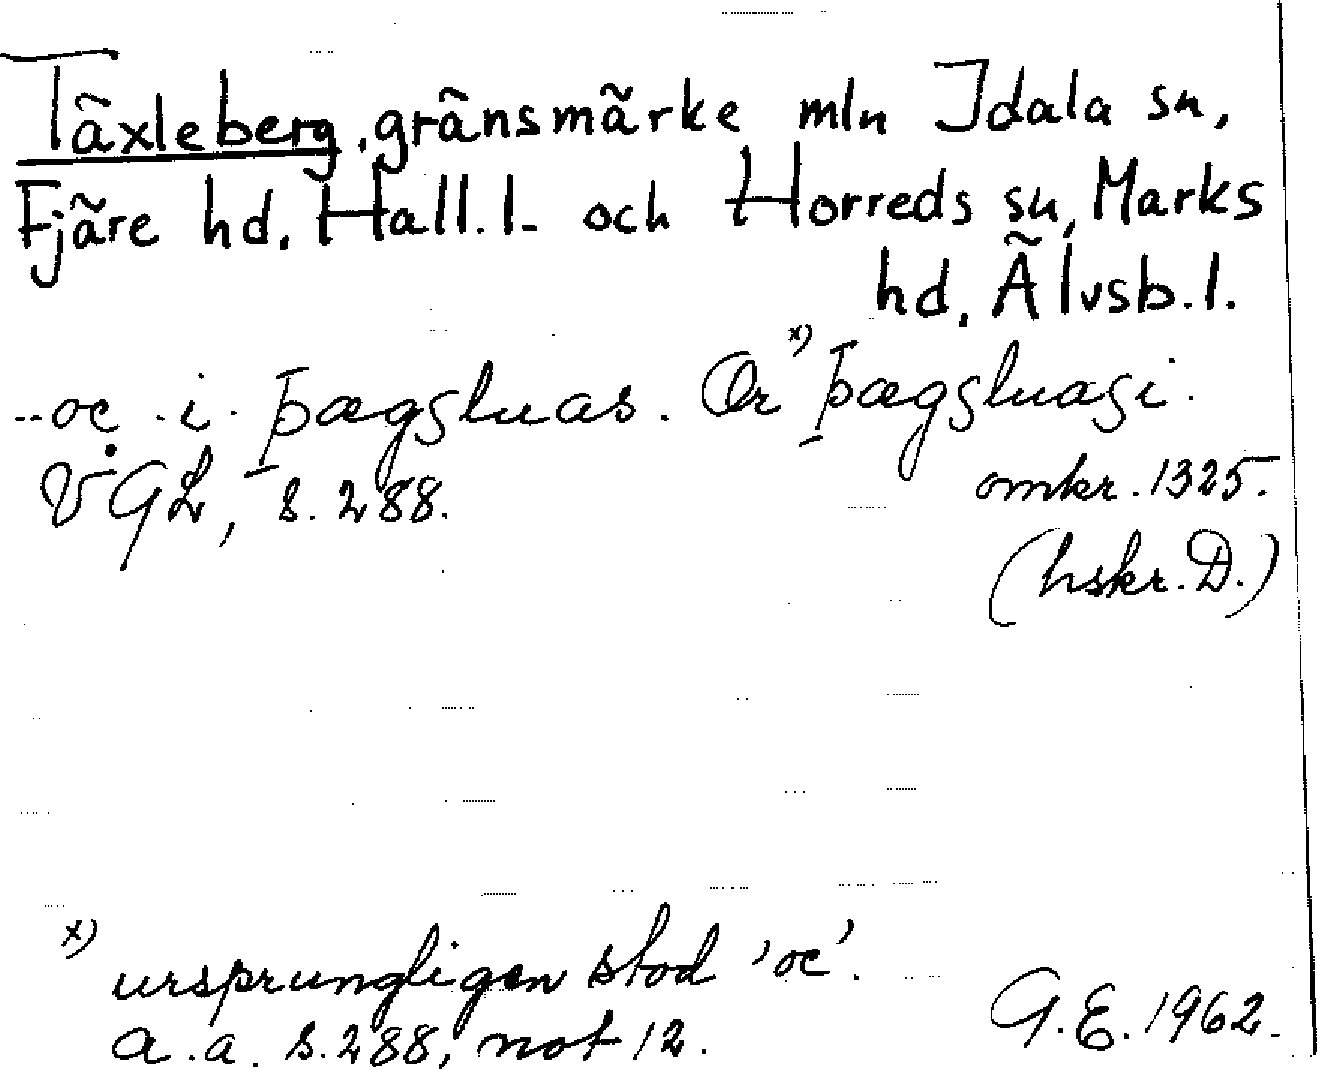 Täxleberg, gränsmärke mln Idala sn,
Fjäre hd. Hall. l. och Horreds sn, Marks
hd. Älvsb. l.
..oc . i . þægsluas. Ör x) þægsluasi.
VGL, s. 288. omkr. 1325.
(hskr. D.)
x) ursprungligen stod 'oc'.
a.a. s. 288, not 12. G.E. 1962.